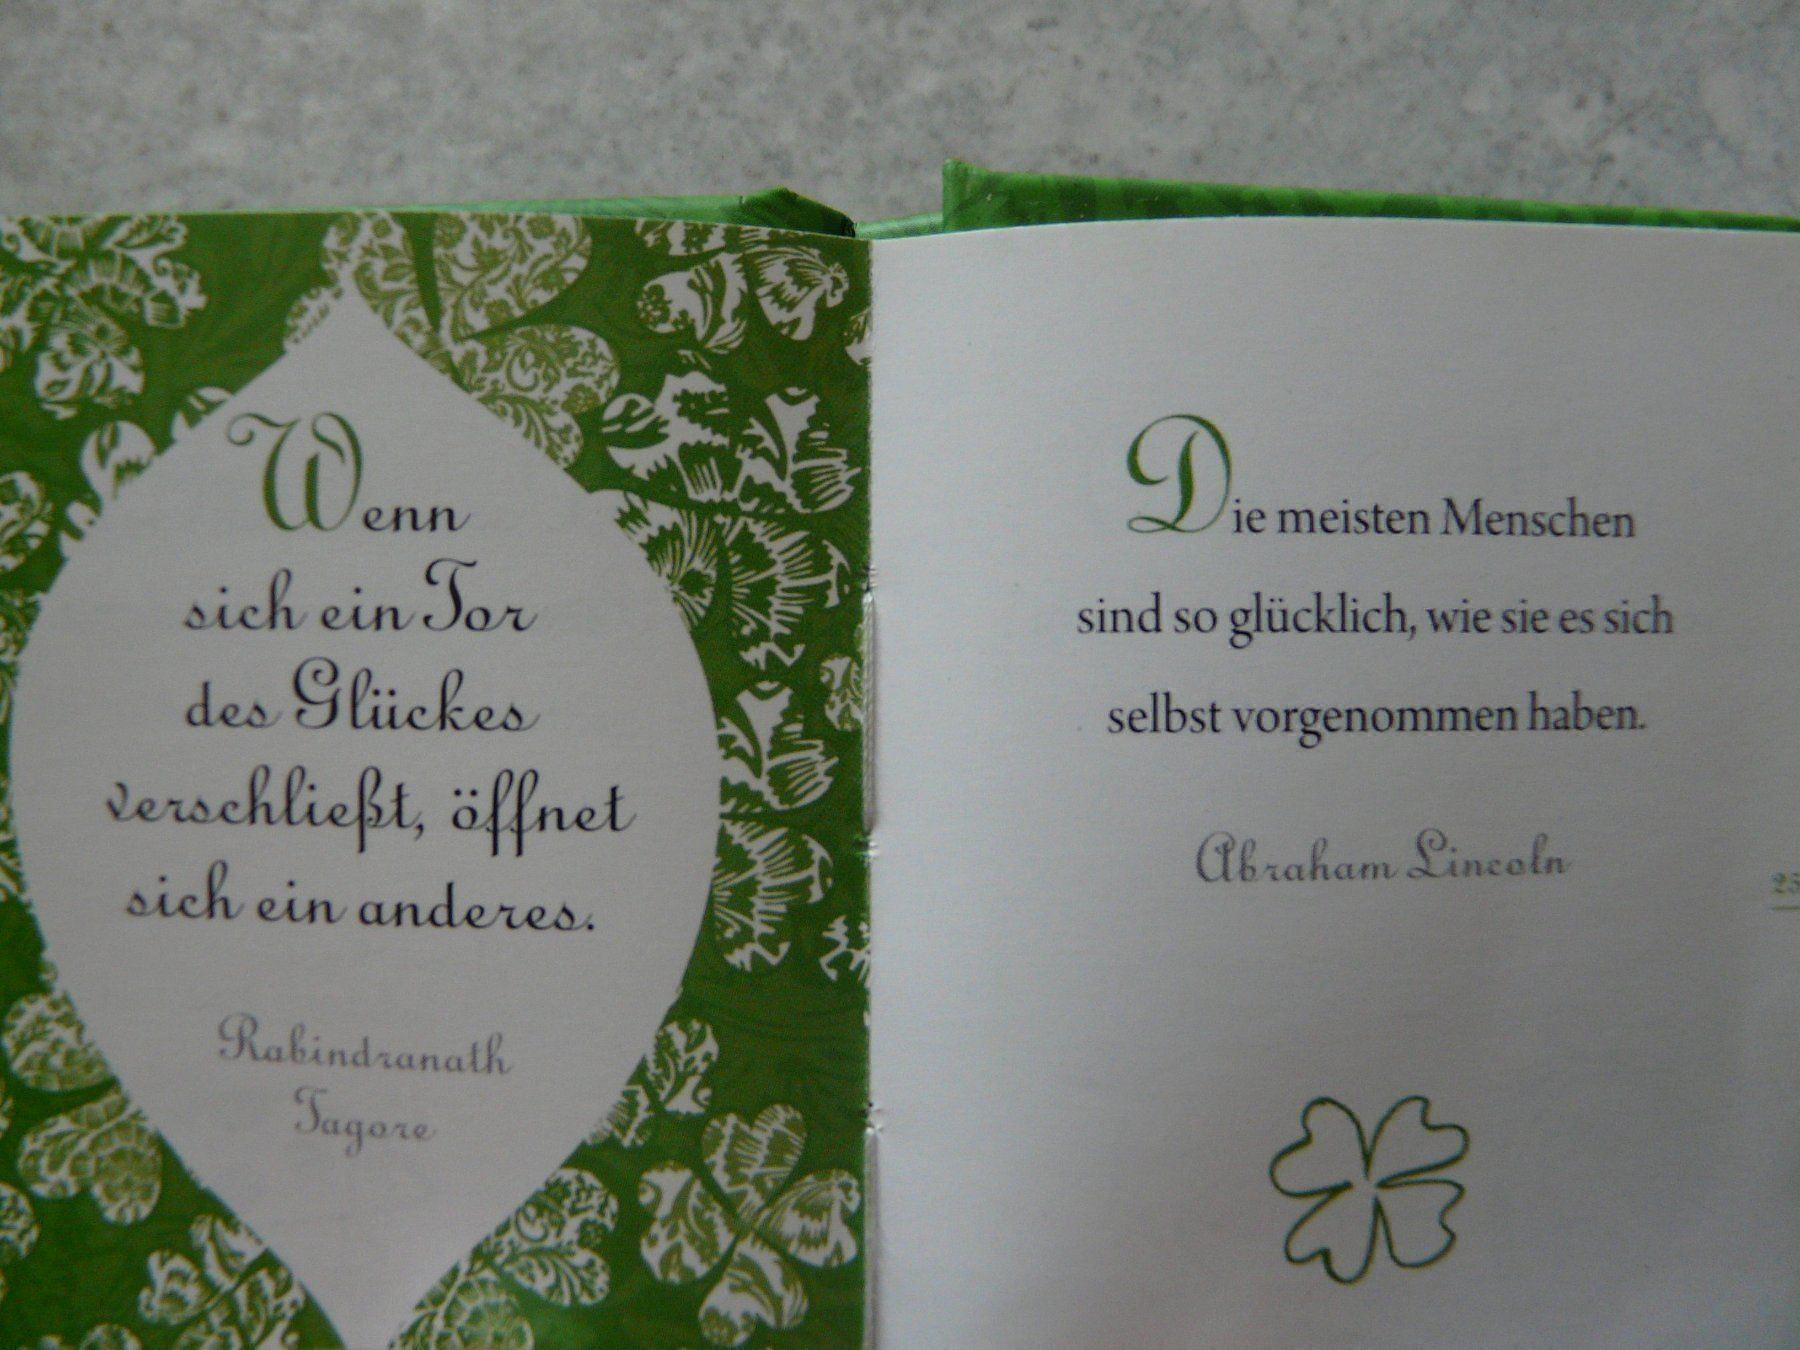 Wenn
sich ein Tor
des Glückes
verschließt, öffnet
sich ein anderes.
Rabindranath
Tagore
Die meisten Menschen
sind so glücklich, wie sie es sich
selbst vorgenommen haben.
Abraham Lincoln
25